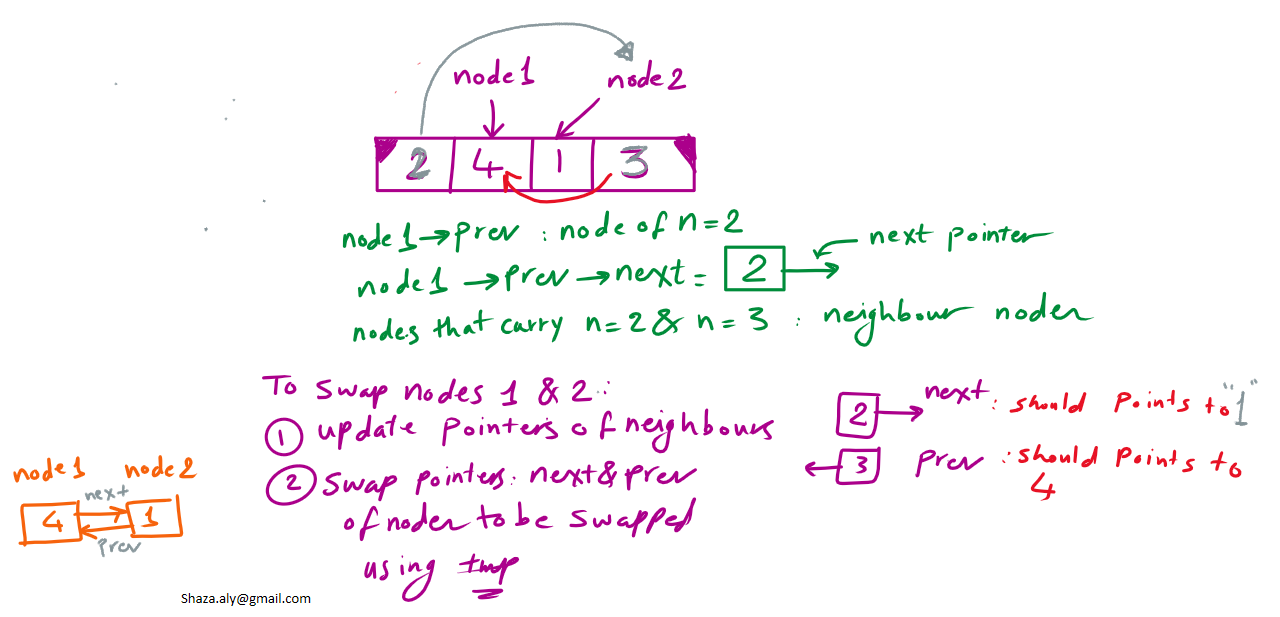 node1 node2
2 4 1 3
node1→prev : node of n=2
node1→prev→next = 2 next pointer
nodes that carry n=2 & n=3 : neighbour nodes
To swap nodes 1 & 2:
① update pointers of neighbours
② swap pointers: next & prev
of nodes to be swapped
using tmp
2 next: should points to "1"
3 prev : should points to
4
node1 node2
next
4 1
prev
Shaza.aly@gmail.com